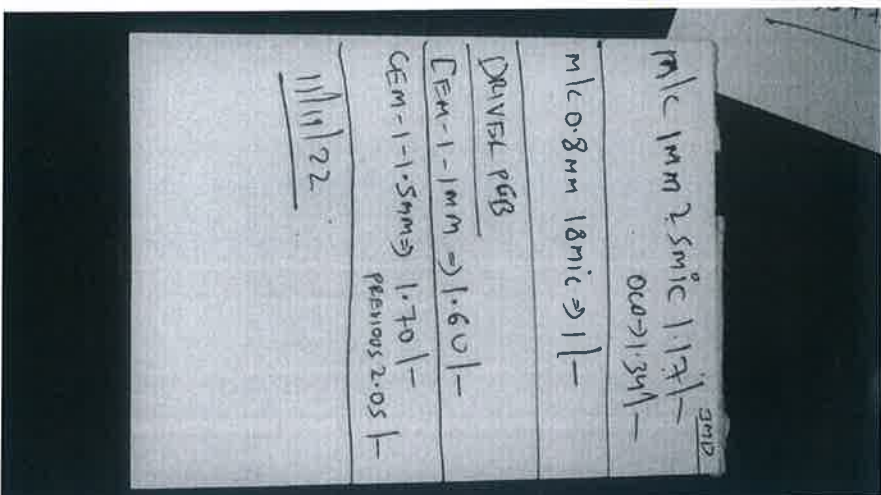 IMD
M/C 1MM 25mic 1.17/-
OLD→1.34/-
M/C 0.8MM 18mic ⇒ 1/-
DRIVER PCB
CEM-1-1MM ⇒ 1.60/-
CEM-1-1.5MM ⇒ 1.70/-
PREVIOUS 2.05/-
11/19/22